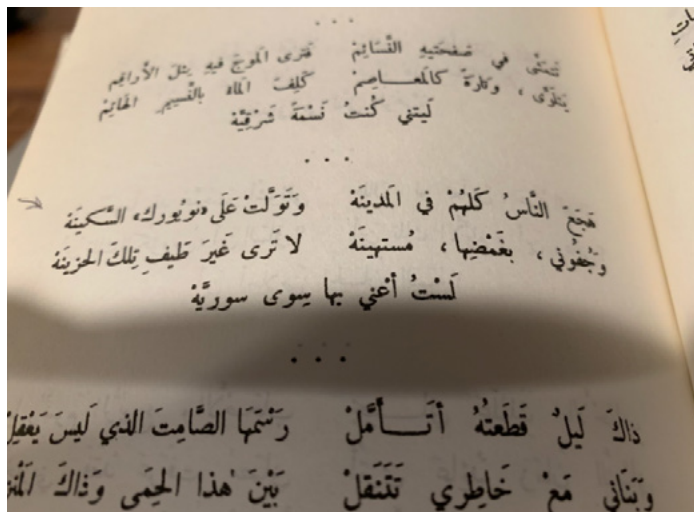 تَتَمَشَّى في صَفحَتَيهِ النَّسَائِمْ فترى المَوجَ فيهِ مِثلَ الأَراقِمْ
يَتَلَوَّى ، وَتَارَةً كالمَعـــاصِمْ كَلِفَ الماءُ بالنَّسيمِ الحَائِمْ
لَيتني كُنتُ نَسْمَةً شَرْقِيَّهْ
هَجَعَ النَّاسُ كُلهُمْ في المَدينَهْ وَتَوَلَّتْ عَلَى «نويورك» السَّكينَهْ
وَجُفُوني ، بغَمْضِها ، مُستهينَهْ لا تَرى غَيرَ طَيفِ تِلكَ الحَزينَهْ
لَسْتُ أعْني بها سِوى سوريَّهْ
ذاكَ لَيلٌ قَطَعتُهُ أتَـــأمَّلْ رَسْمَهَا الصَّامِتَ الذي لَيسَ يَعْقِلْ
وَبَنَاني مَعْ خَاطِري تَتَنَقلْ بَيْنَ هٰذا الحِمَى وَذاكَ